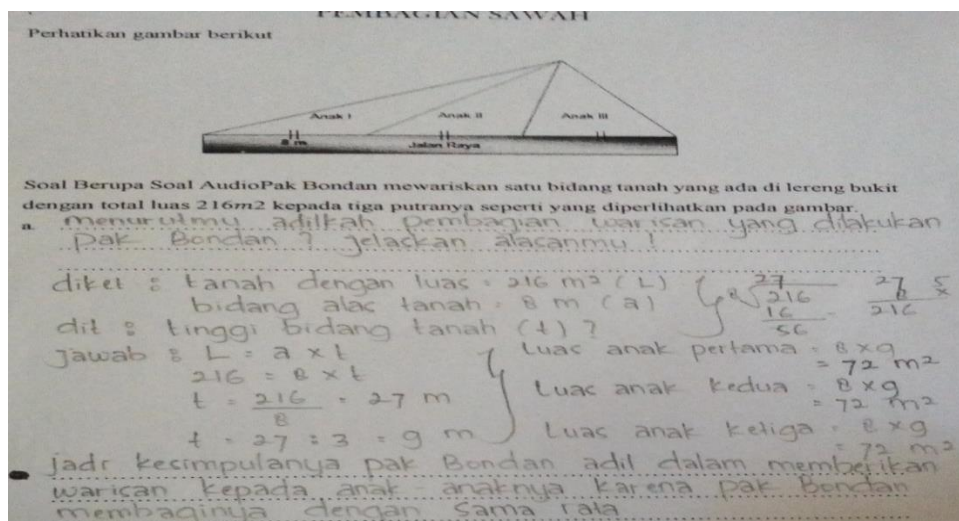 PEMBAGIAN SAWAH
Perhatikan gambar berikut
Anak I
Anak II
Anak III
8 m
Jalan Raya
Soal Berupa Soal AudioPak Bondan mewariskan satu bidang tanah yang ada di lereng bukit
dengan total luas 216m2 kepada tiga putranya seperti yang diperlihatkan pada gambar.
a. menurutmu adilkah pembagian warisan yang dilakukan
Pak Bondan ? jelaskan alasanmu !
diket : tanah dengan luas = 216 m² (L)
bidang alas tanah = 8 m (a)
dit : tinggi bidang tanah (t) ?
27
8 216
16
56
27
8 x
216
Jawab : L = a x t
216 = 8 x t
t = 216/8 = 27 m
t = 27 : 3 = 9 m
Luas anak pertama = 8 x 9
= 72 m²
Luas anak kedua = 8 x 9
= 72 m²
Luas anak ketiga = 8 x 9
= 72 m²
jadi kesimpulanya pak Bondan adil dalam memberikan
warisan kepada anak-anaknya karena pak Bondan
membaginya dengan sama rata